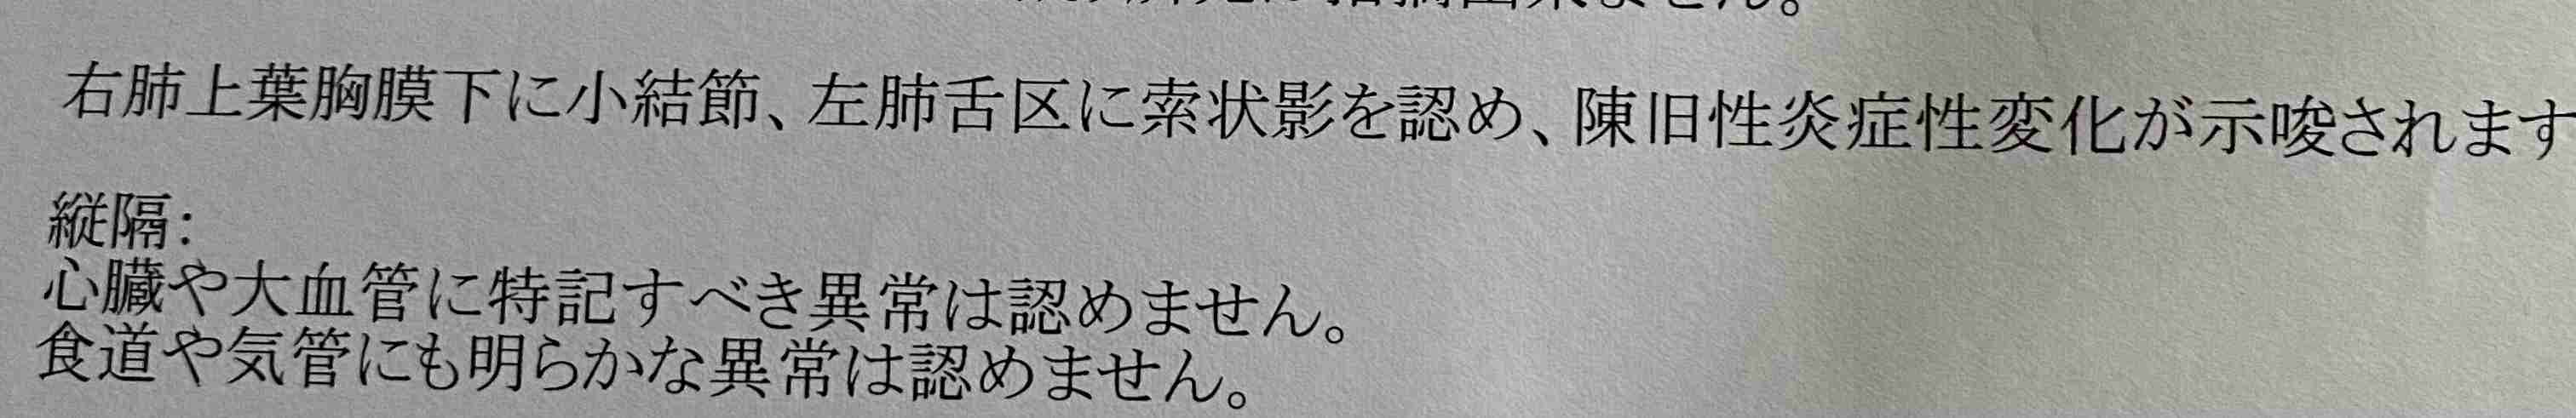 ません。
右肺上葉胸膜下に小結節、左肺舌区に索状影を認め、陳旧性炎症性変化が示唆されます
縦隔:
心臓や大血管に特記すべき異常は認めません。
食道や気管にも明らかな異常は認めません。